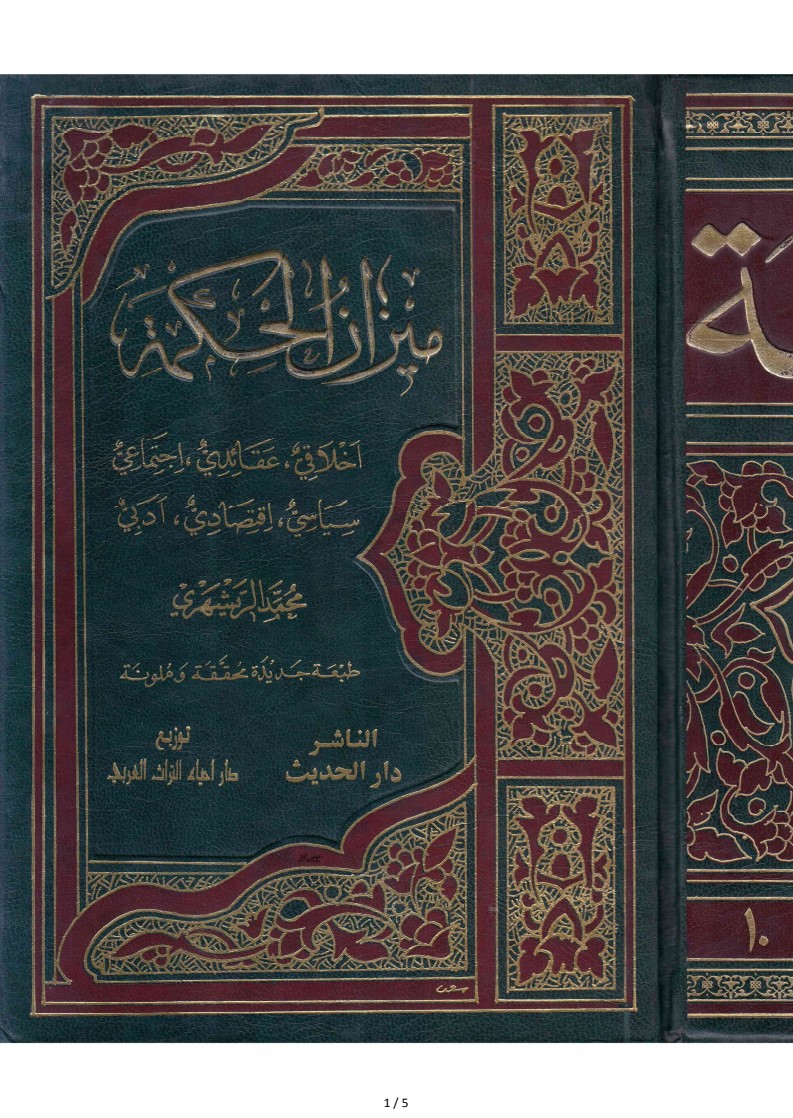 ميزان الحكمة
أخلاقيٌّ، عَقَائِديٌّ، اِجتِمَاعيٌّ
سِيَاسيٌّ، اِقتِصَاديٌّ، أدَبيٌّ
محمّد الريشهري
طبعَة جَديدَة محُقّقَة وَمُلونَة
الناشر
دار الحديث
توزيع
دار احياء التراث العربي
١٠
1 / 5